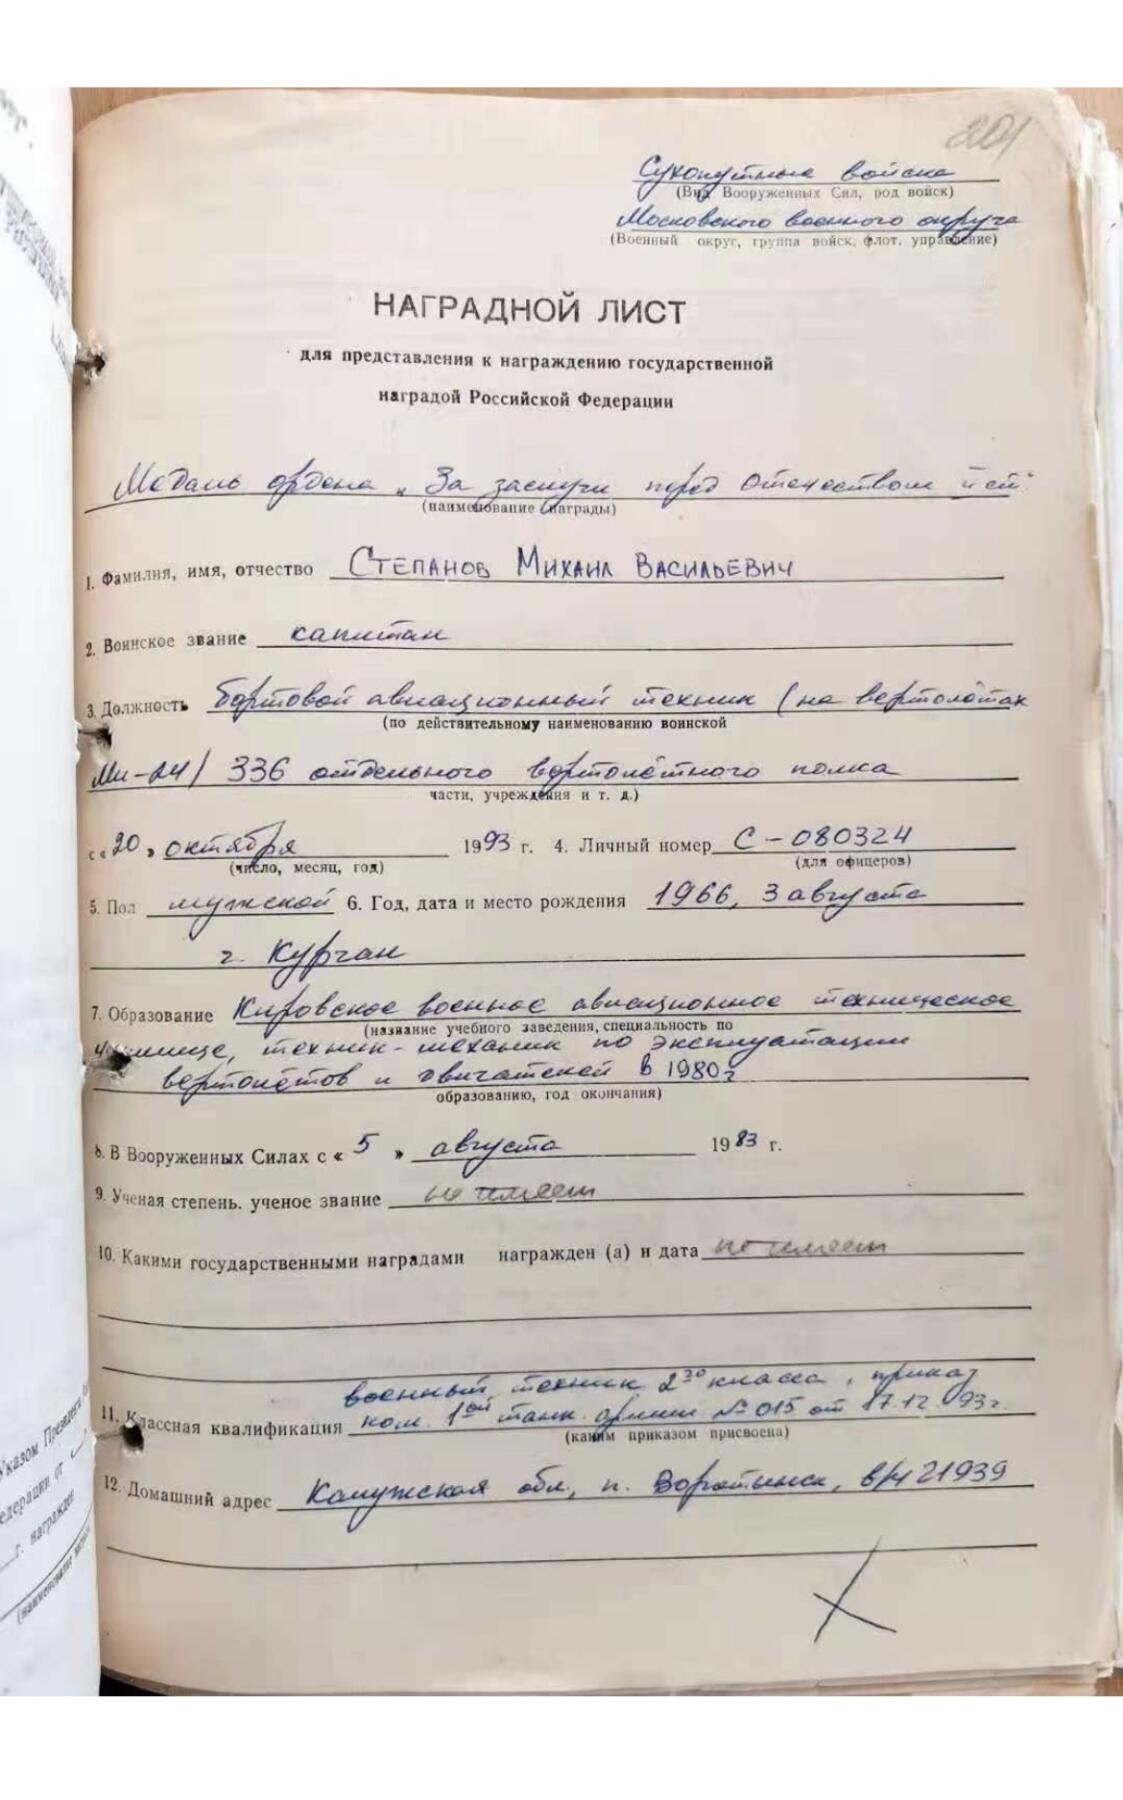 201
Сухопутные войска
(Вид Вооруженных Сил, род войск)
Московского военного округа
(Военный округ, группа войск, флот, управление)
НАГРАДНОЙ ЛИСТ
для представления к награждению государственной
наградой Российской Федерации
Медаль ордена „За заслуги перед Отечеством II ст"
(наименование награды)
1. Фамилия, имя, отчество СТЕПАНОВ МИХАИЛ ВАСИЛЬЕВИЧ
2. Воинское звание капитан
3. Должность бортовой авиационный техник (на вертолётах
(по действительному наименованию воинской
Ми-24) 336 отдельного вертолётного полка
части, учреждения и т. д.)
с «20» октября 1993 г. 4. Личный номер С-080324
(число, месяц, год) (для офицеров)
5. Пол мужской 6. Год, дата и место рождения 1966, 3 августа
г. Курган
7. Образование Кировское военное авиационное техническое
(название учебного заведения, специальность по
училище, техник-механик по эксплуатации
вертолётов и двигателей в 1980г
образованию, год окончания)
8. В Вооруженных Силах с «5» августа 1983 г.
9. Ученая степень, ученое звание не имеет
10. Какими государственными наградами награжден (а) и дата не имеет
военный техник 2го класса, приказ
11. Классная квалификация ком. 1ой танк. армии № 015 от 17.12.93г.
(каким приказом присвоена)
12. Домашний адрес Калужская обл, п. Воротынск, в/ч 21939
Указом Президента
едерации от
г. награжден